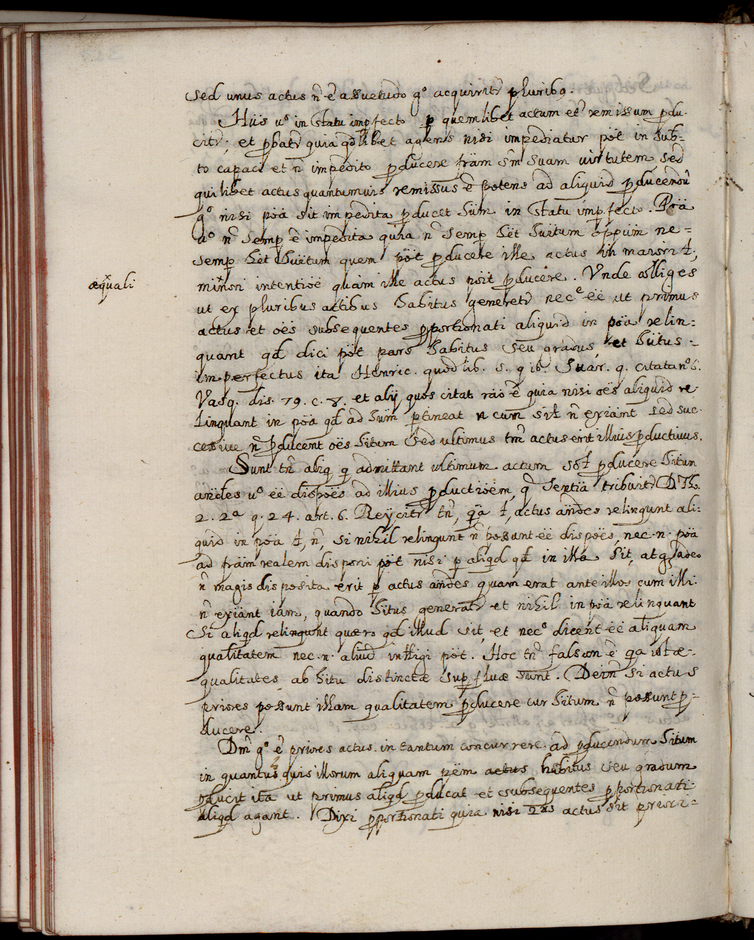 sed unus actus n̄ ē assuetudo g° acquiritr pluribq.
Huis u° in statu impfecto p quemlibet actum etr remissum pdu-
citr. et pbatr quia qdlibet agens nisi impediatur pōt in sub-
to capaci et n̄ impedito pducere fr̄am sm̄ suam virtutem sed
quilibet actus quantumuis remissus ē potens ad aliquid pducendū
g° nisi pōā sit impedita pducet s̄um in statu impfecto. Pōā
u° n̄ semp ē impedita quia n̄ semp h̄ēt h̄itum oppm̄ ne-
semp h̄ēt h̄itum quem pōt pducere ille actus in maiori ɫ,
æquali
minori intentiōē quam ille actus pōsit pducere. Unde colliges
ut ex pluribus actibus habitus generetr nec° ēē ut primus
actus et ōēs subsequentes pportionati aliquid in pōā relin-
quant qd dici pōt pars habitus seu gradus, et h̄itus
imperfectus ita Henric. quodlib. 5. q. 16. Suar. q. citata n° 6.
Vasq. dis. 79. c. 8. et alij quos citat rāō ē quia nisi ōēs aliquid re-
linquant in pōā qd ad h̄um ptineat cum sil n̄ exiānt sed suc-
cessive n̄ pducent ōēs h̄itum sed ultimus tm̄ actus erit illius pductivus.
Sunt tn̄ aliq q admittant ultimum actum sol pducere h̄itum
an̄d̄es u° ēē dispōēs ad illius pductiōēm, q sentīā tribuitr D. Tho.
2. 2æ q. 24. art. 6. Reijcitr tn̄, qa ɫ, actus an̄dēs relinqunt ali-
quid in pōā ɫ, n̄, si nihil relinqunt n̄ possunt ēē dispōēs, nec n. pōā
ad fr̄am realem disponi pōt nisi p aliqd qd in illa sit, atq adeo
n̄ magis disposita erit p actus an̄dēs quam erat ante illos cum illi
n̄ exiānt iam, quando h̄itus generatr et nihil in pōā relinquant
Si aliqd relinqunt quæro qd illud sit, et nec° dicent ēē aliquam
qualitatem nec n. aliud intlligi pōt. Hoc tn̄ falsum ē qa istæ
qualitates ab h̄itu distinctæ supfluæ sunt. Dein̄ si actus
priores possunt illam qualitatem pducere cur h̄itum n̄ possunt p-
ducere.
Dm̄ g° ē priores actus in tantum concurrere ad pducendum h̄itum
in quantus quis illorum aliquam pēm actus habitus seu gradum
pducit ita ut primus aliqd pducat et subsequentes pportionati
aliqd agant. Dixi pportionati quia nisi 2us actus sit priori-